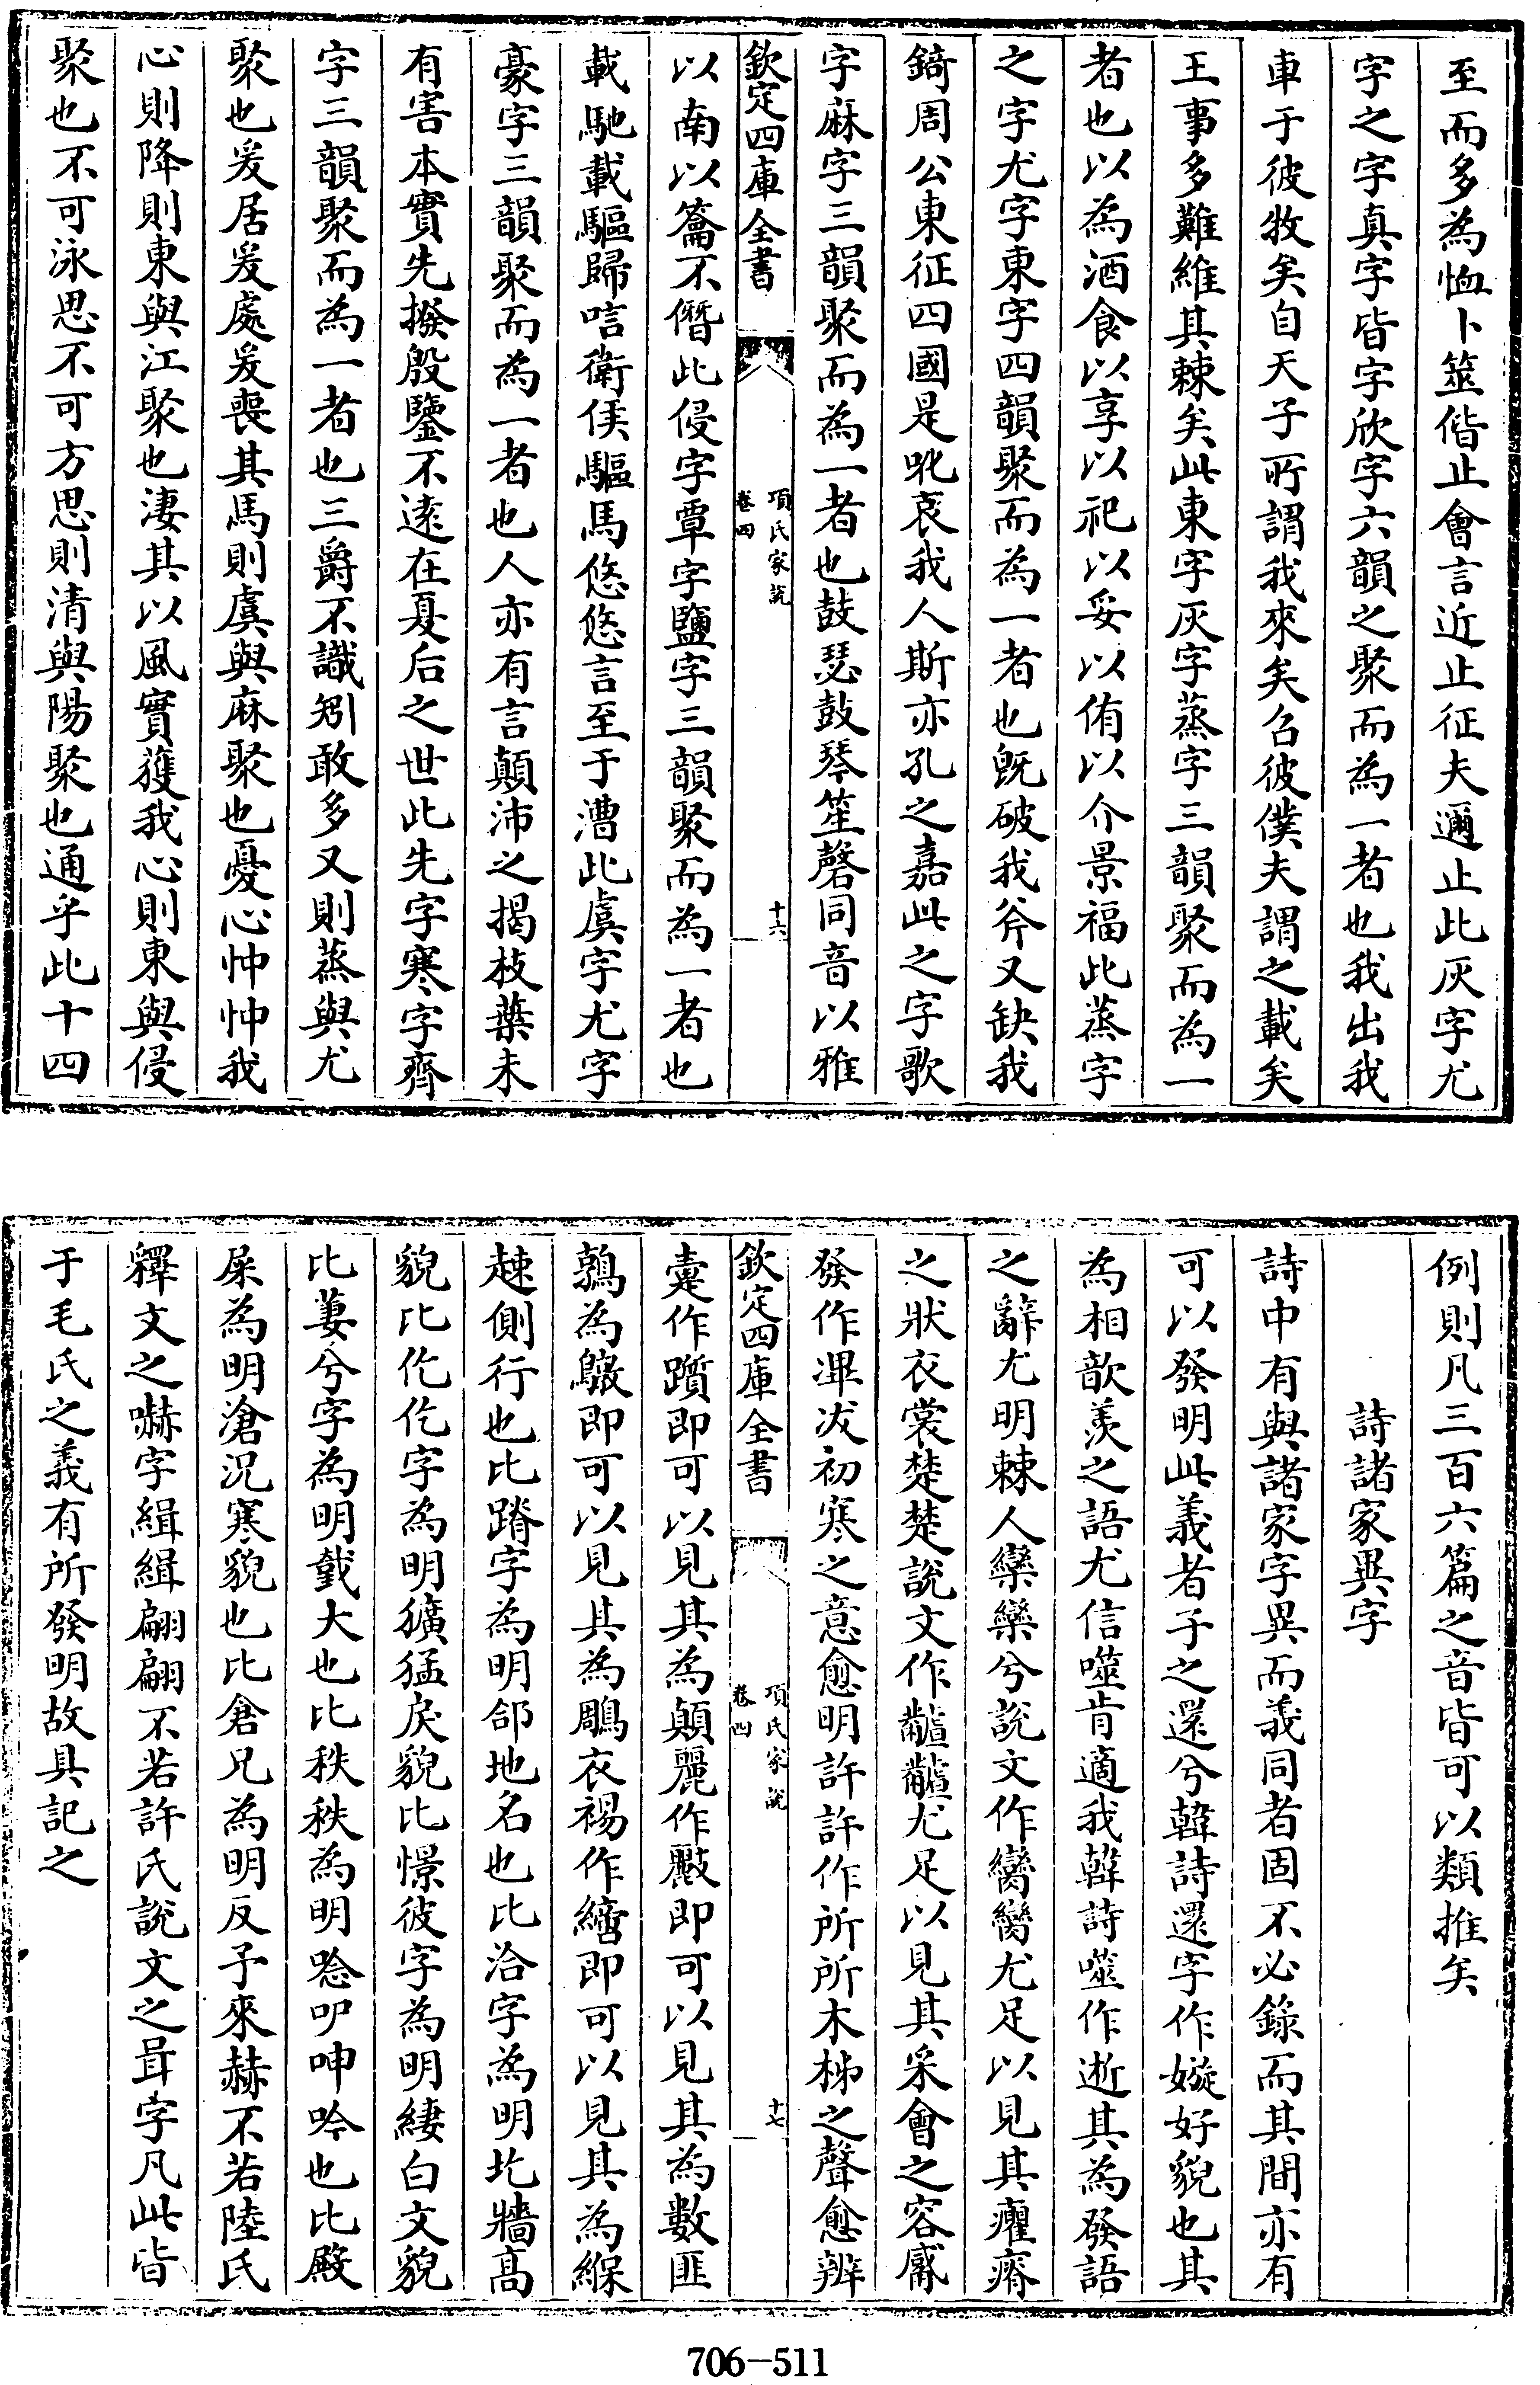 至而多為恤卜筮偕止會言近止征夫邇止此灰字尤
字之字真字皆字欣字六韻之聚而為一者也我出我
車于彼牧矣自天子所謂我來矣召彼僕夫謂之載矣
王事多難維其棘矣此東字灰字蒸字三韻聚而為一
者也以為酒食以享以祀以妥以侑以介景福此蒸字
之字尤字東字四韻聚而為一者也既破我斧又缺我
錡周公東征四國是吪哀我人斯亦孔之嘉此之字歌
字麻字三韻聚而為一者也鼓瑟鼓琴笙磬同音以雅
欽定四庫全書
項氏家說
卷四
十六
以南以籥不僭此侵字覃字鹽字三韻聚而為一者也
載馳載驅歸唁衛侯驅馬悠悠言至于漕此虞字尤字
豪字三韻聚而為一者也人亦有言顛沛之揭枝葉未
有害本實先撥殷鑒不遠在夏后之世此先字寒字齊
字三韻聚而為一者也三爵不識矧敢多又則蒸與尤
聚也爰居爰處爰喪其馬則虞與麻聚也憂心忡忡我
心則降則東與江聚也淒其以風實獲我心則東與侵
聚也不可泳思不可方思則清與陽聚也通乎此十四
例則凡三百六篇之音皆可以類推矣
詩諸家異字
詩中有與諸家字異而義同者固不必錄而其間亦有
可以發明此義者子之還兮韓詩還字作嫙好貌也其
為相歆羨之語尤信噬肯適我韓詩噬作逝其為發語
之辭尤明棘人欒欒兮說文作臠臠尤足以見其癯瘠
之狀衣裳楚楚說文作黼黼尤足以見其采會之容觱
發作滭冹初寒之意愈明許許作所所木柹之聲愈辨
欽定四庫全書
項氏家說
卷四
十七
疐作躓即可以見其為顛麗作𢿛即可以見其為數匪
鶉為鷻即可以見其為鵰衣裼作䙆即可以見其為緥
趚側行也比蹐字為明郃地名也比洽字為明圪牆高
貌比仡仡字為明獷猛戾貌比憬彼字為明縷白文貌
比萋兮字為明䵺大也比秩秩為明唸吚呻吟也比殿
屎為明滄況寒貌也比倉兄為明反予來赫不若陸氏
釋文之嚇字緝緝翩翩不若許氏說文之咠字凡此皆
于毛氏之義有所發明故具記之
706-511